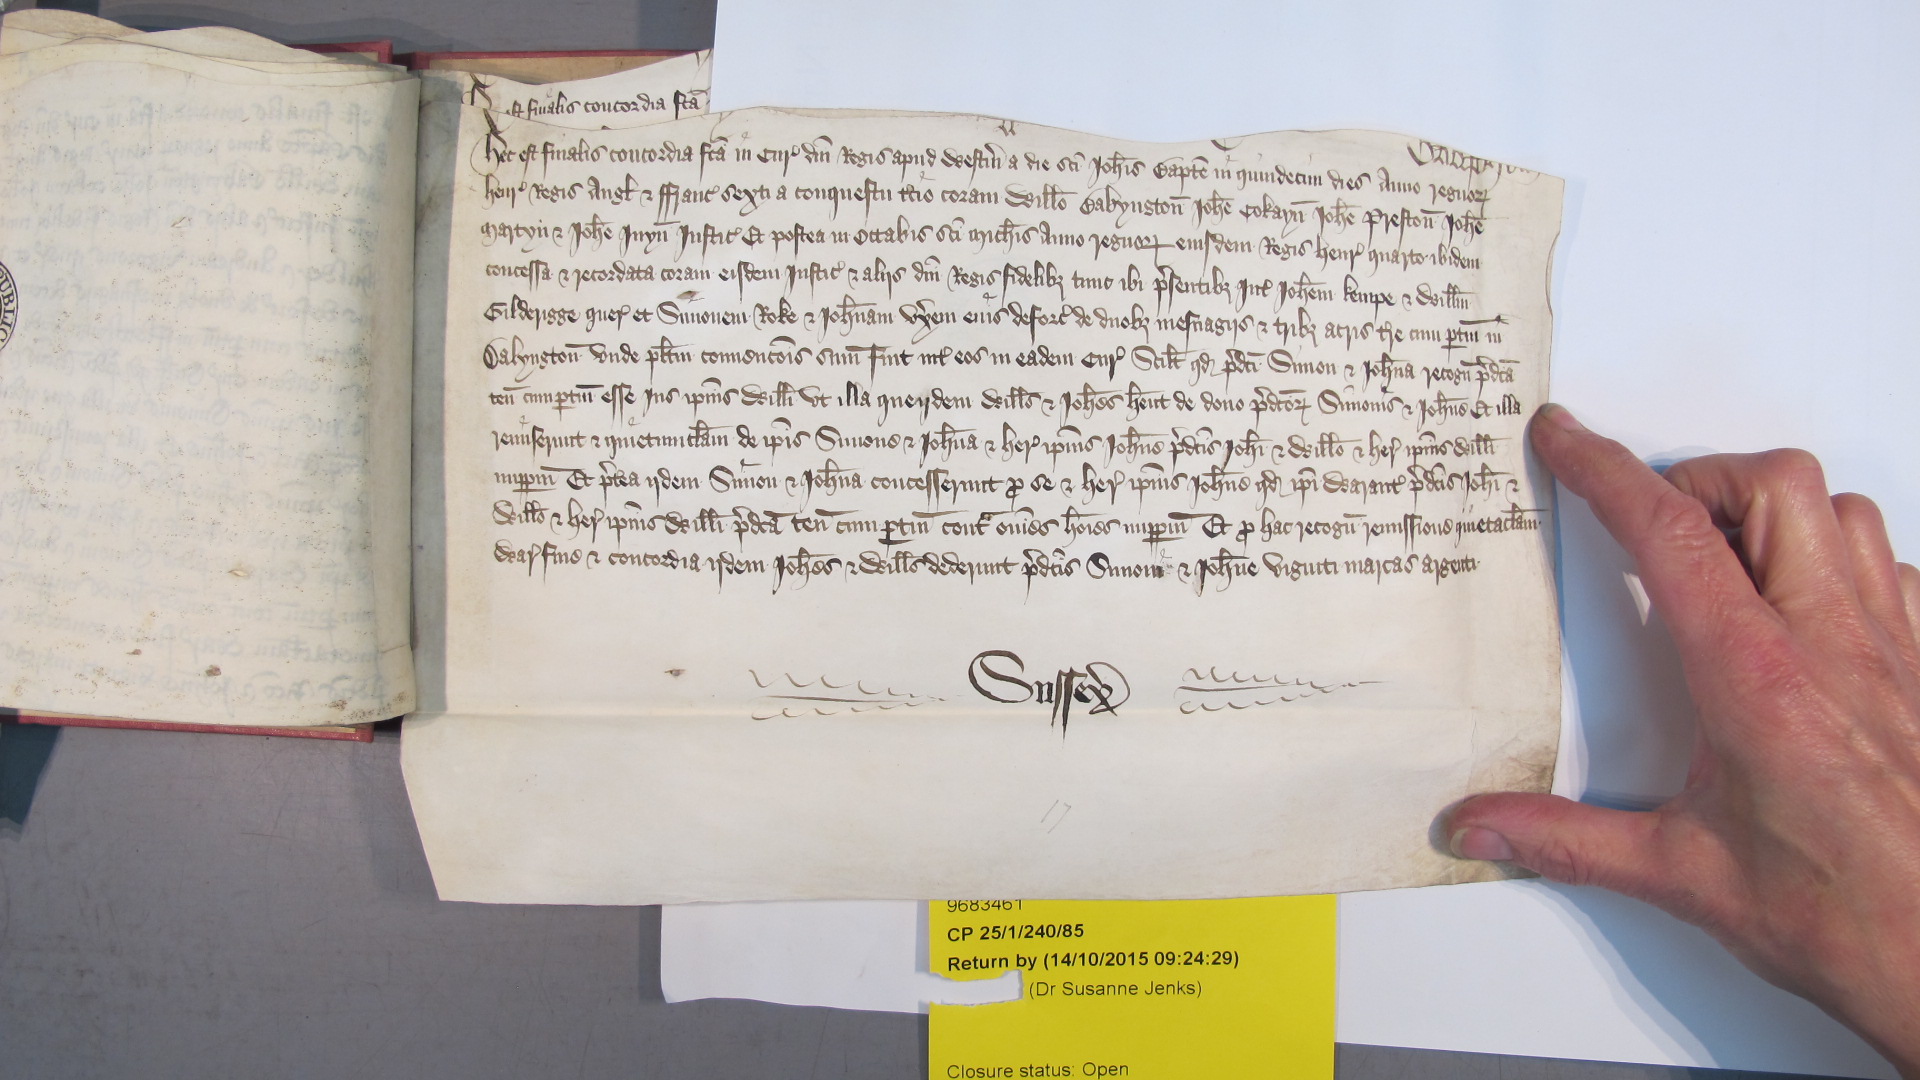 est finalis concordia fcã
Hec est finalis concordia fcã in Cur' dñi Regis apud Westm̃ a die sci Johis Bapte in quindecim dies Anno regnoꝝ
Henr' Regis Angl' & Ffranc' sexti a conquestu t'cio coram Willo Babyngton̄ Johe Cokayn̄ Johe Preston̄ Johe
Martyn & Johe Inyn̄ Justic' Et postea in Octabis sci Michis Anno regnoꝝ eiusdem Regis Henr' quarto ibidem
concessa & recordata coram eisdem Justic' & alijs dñi Regis fidelibȝ tunc ibi p'sentibȝ Int' Johem Kempe & Willm
Gilderigge quer' et Simonem Roke & Johnam vx'em eius deforc' de duobȝ mesuagijs & tribȝ acris t're cum ptin in
Babyngton̄ vnde plitm conuencois sum fuit int' eos in eadem Cur' Scilt qd p'dci Simon & Johna recogn p'dcã
ten̄ cum ptin esse Jus ipius Willi vt illa que ijdem Wills & Johes hent de dono p'dcoꝝ Simonis & Johne Et illa
remiserunt & quietumclam de ipis Simone & Johna & her' ipius Johne p'dcis Johi & Willo & her' ipius Willi
imppm Et p'tea ijdem Simon & Johna concesserunt p se & her' ipius Johne qd ipi Warant' p'dcis Johi &
Willo & her' ipius Willi p'dcã ten̄ cum ptin cont' omes hoies imppm Et p hac recogn remissione quietaclam
War' fine & concordia ijdem Johes & Wills dederunt p'dcis Simoni & Johne viginti marcas argenti
Sussex
17
9683461
CP 25/1/240/85
Return by (14/10/2015 09:24:29)
(Dr Susanne Jenks)
Closure status: Open